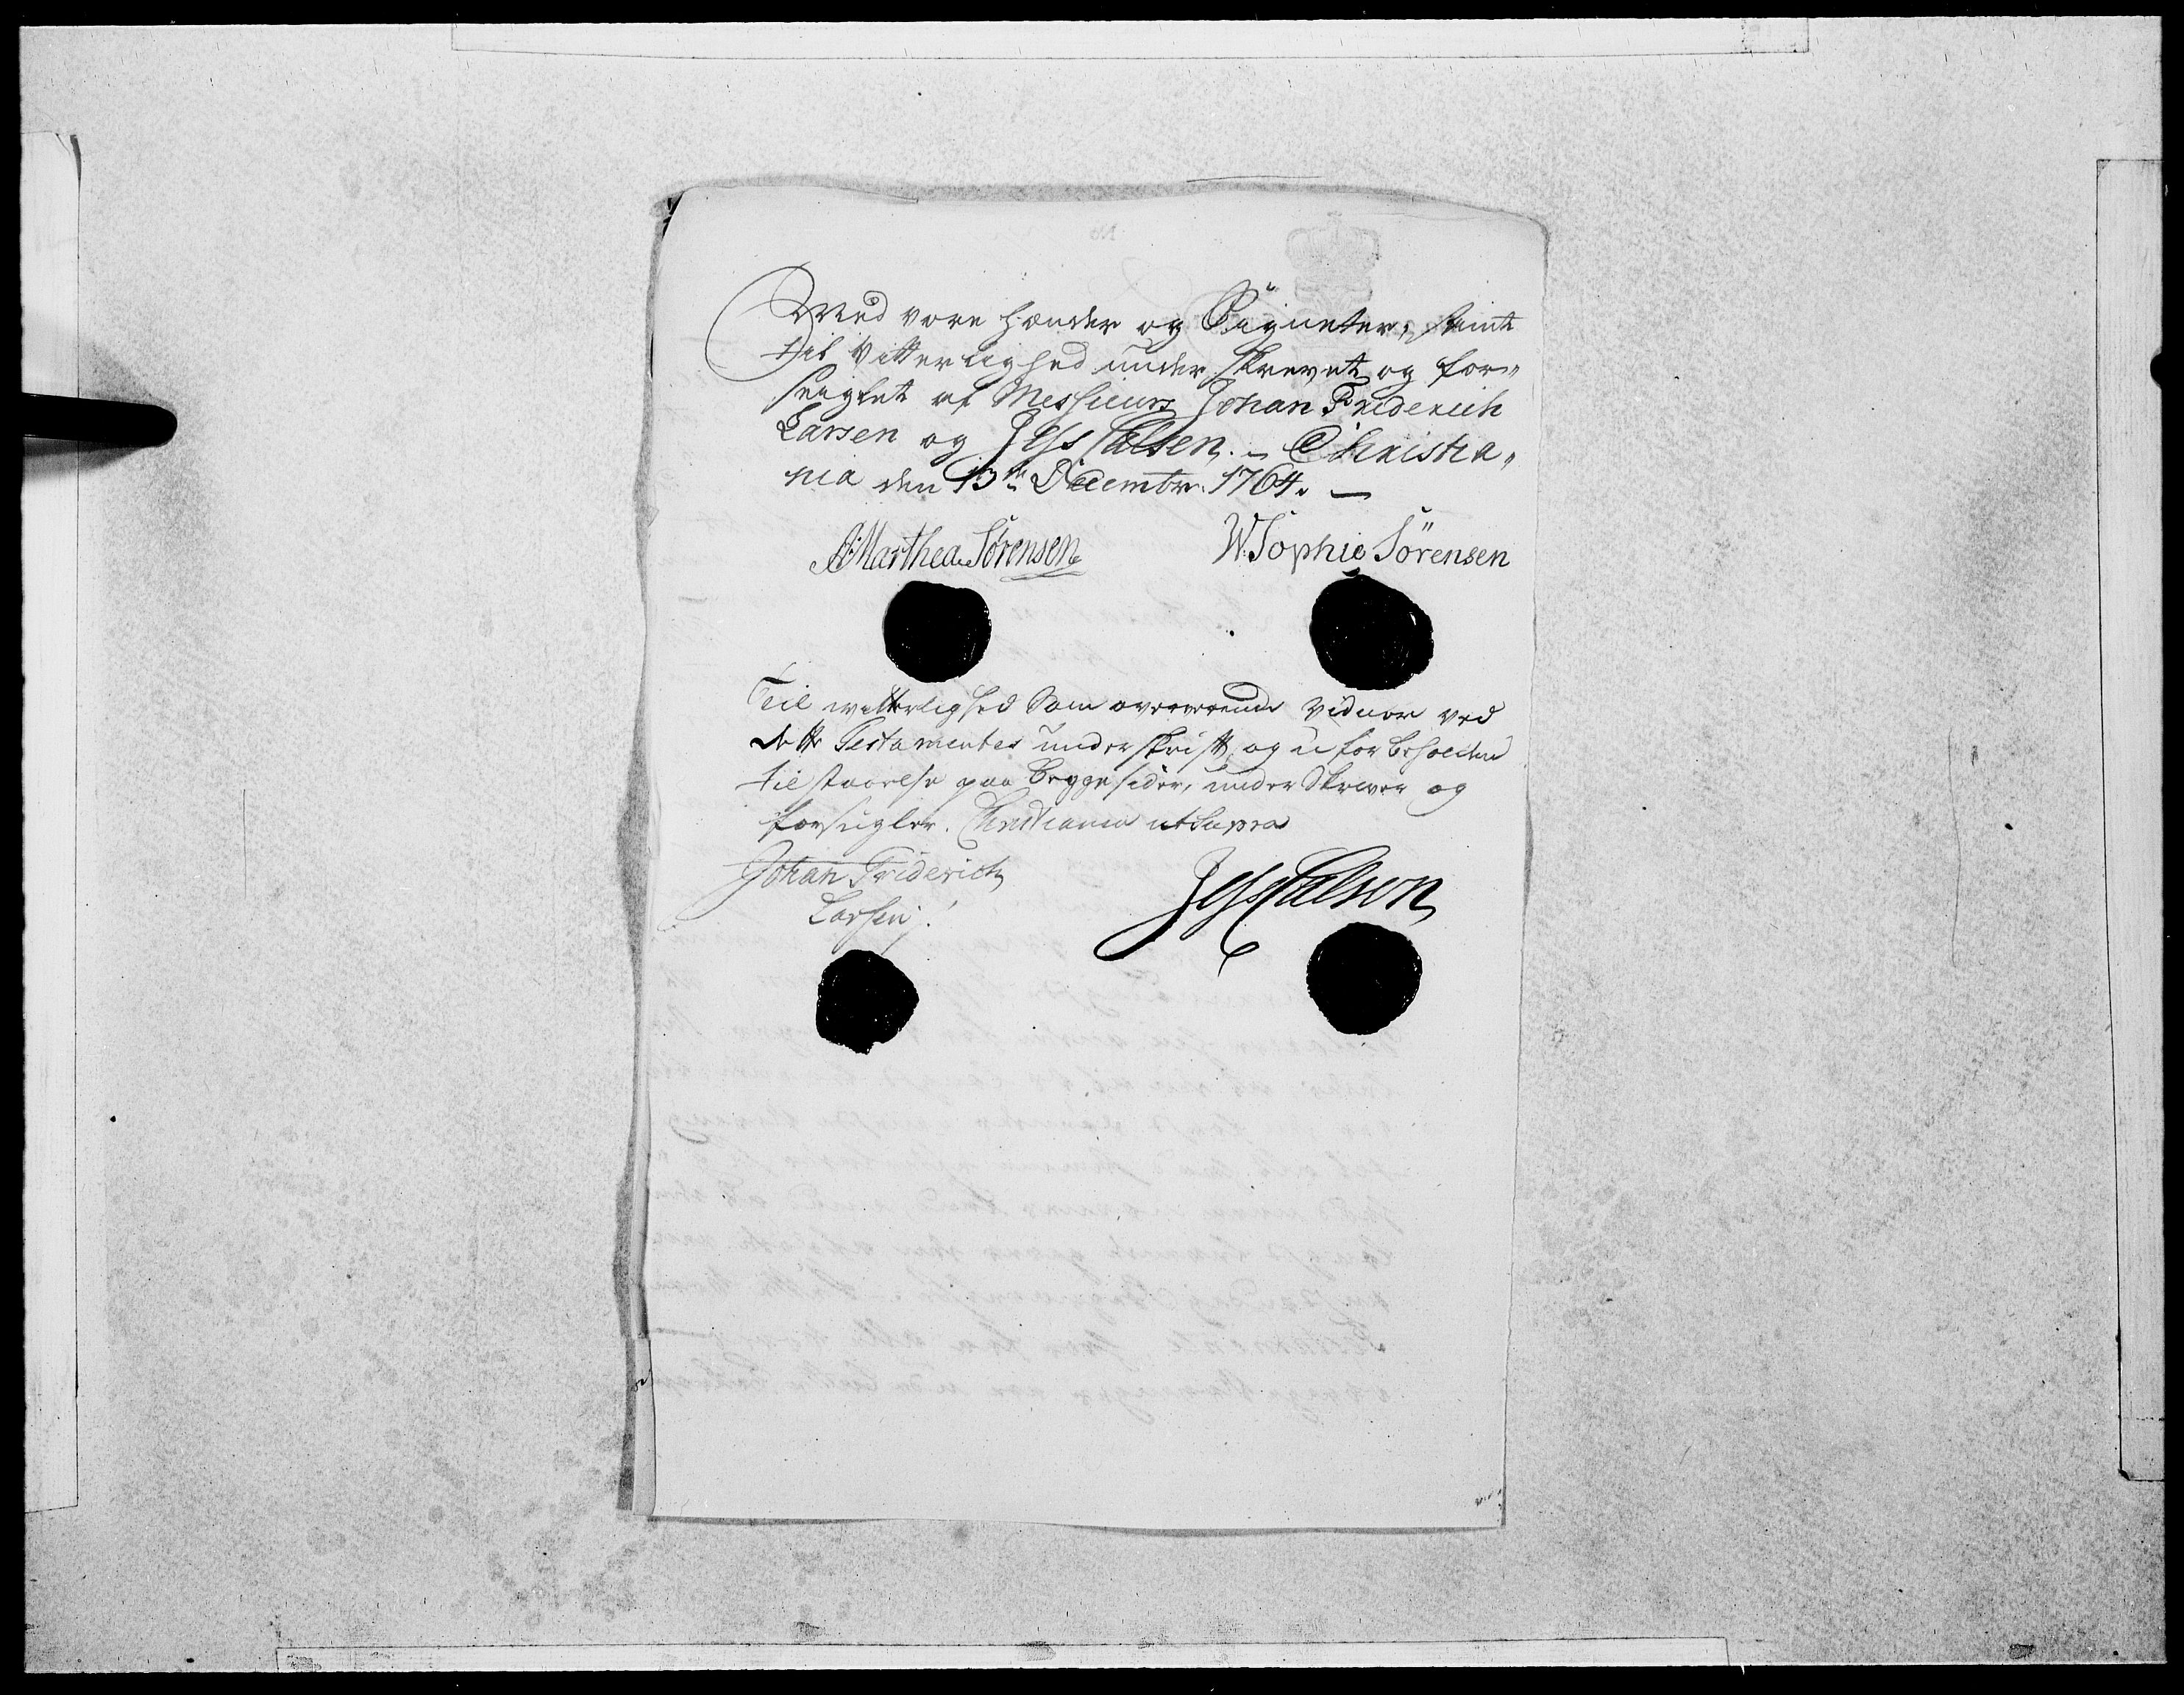 Med vore hænder og Signeter, samt
til Vitterlighed under skrevet og for„
seiglet af Messieurs Johan Friderich
Larsen og Jess Calsen. – Christia„
nia den 13de Decembr. 1764. —
A: Marthea Sørensen W: Sophie Sörensen
Til witterlighed som overwerende vidner ved
dette Testamentes underskrift, og uforbeholden
tilstaaelse paa begge sider, under Skrever og
forsegler. Christiania ut Supra
Johan Friderich Jess Calsen
Larsen.